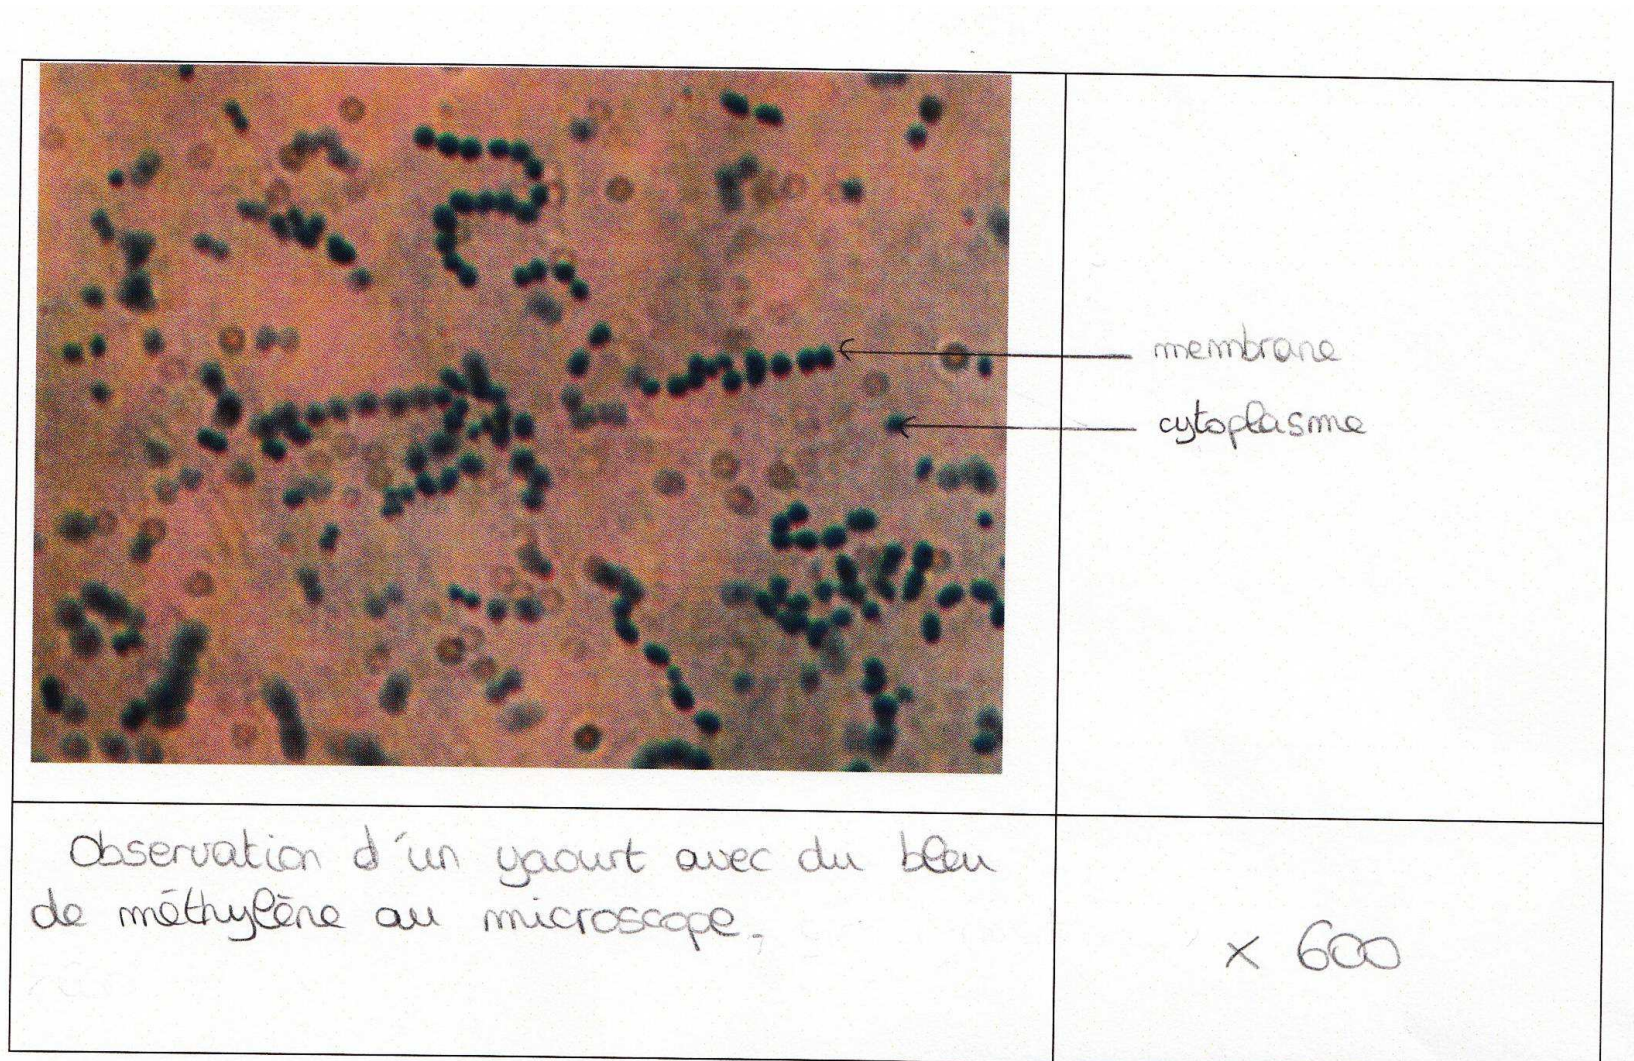 membrane
cytoplasme
Observation d'un yaourt avec du bleu
de méthylène au microscope.
x 600